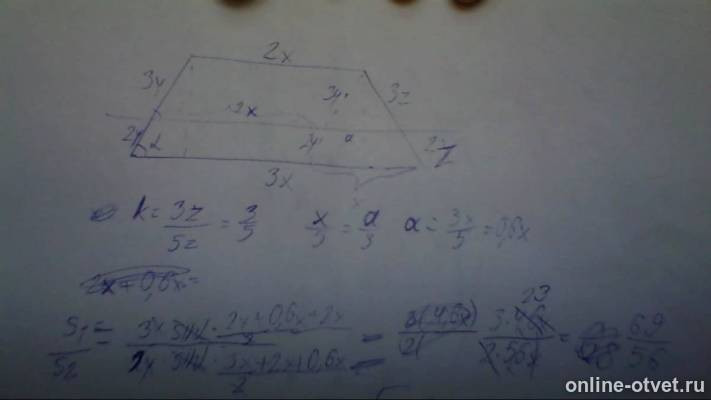 2x
3y 3y 3z
2x
2y α 2y a 2z
3x
x
k = 3z/5z = 3/5 x/5 = a/3 a = 3x/5 = 0,6x
2x + 0,6x =
S1/S2 = (3y · sinα · (2x + 0,6x + 2x)/2) / (2y · sinα · (3x + 2x + 0,6x)/2) = 3(4,6x)/2( = 3 · 4,6x 23 / 2 · 5,6x = 69/56
online-otvet.ru